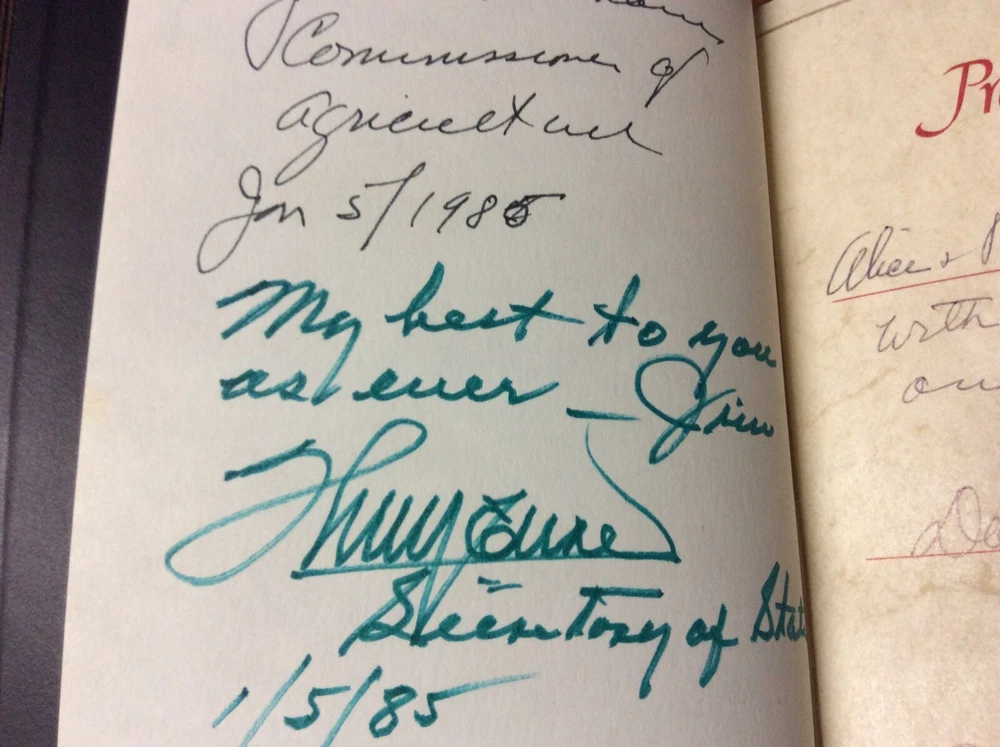 Commissioner of
Agriculture
Jan 5/1985
My best to you
as ever – Jim
Thad Eure
Secretary of State
1/5/85
Pr
Alice +
with
on
De